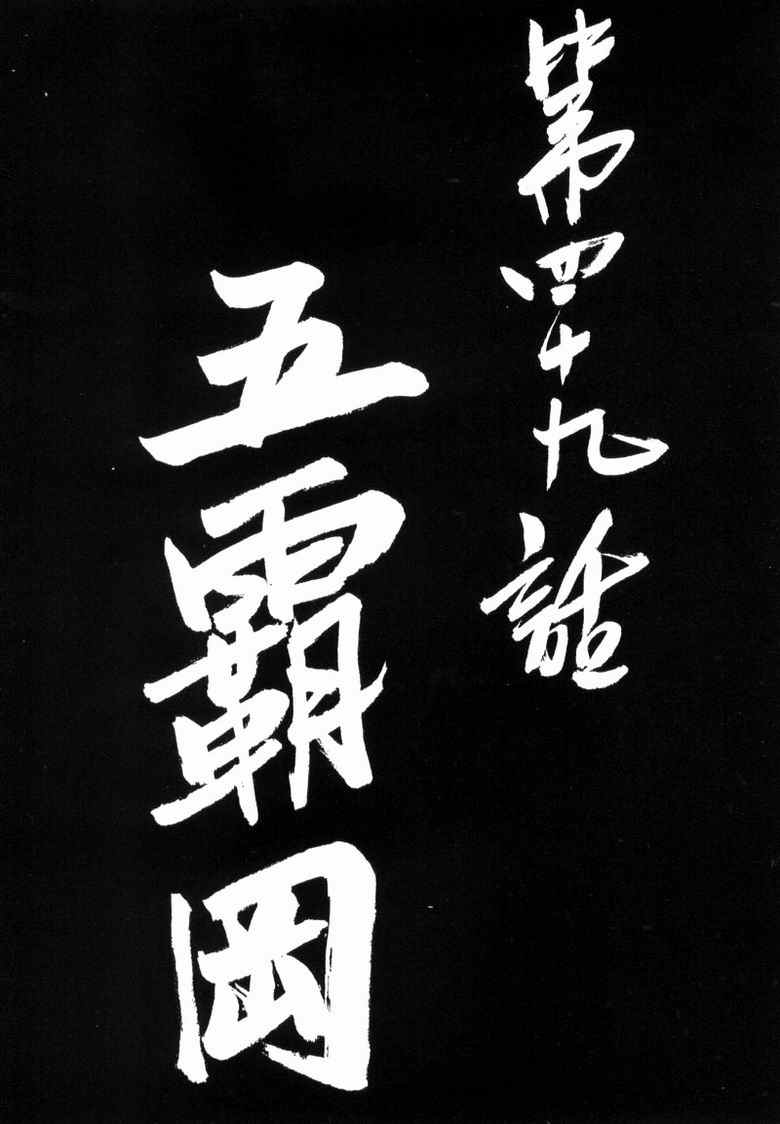 第四十九話
五霸岡